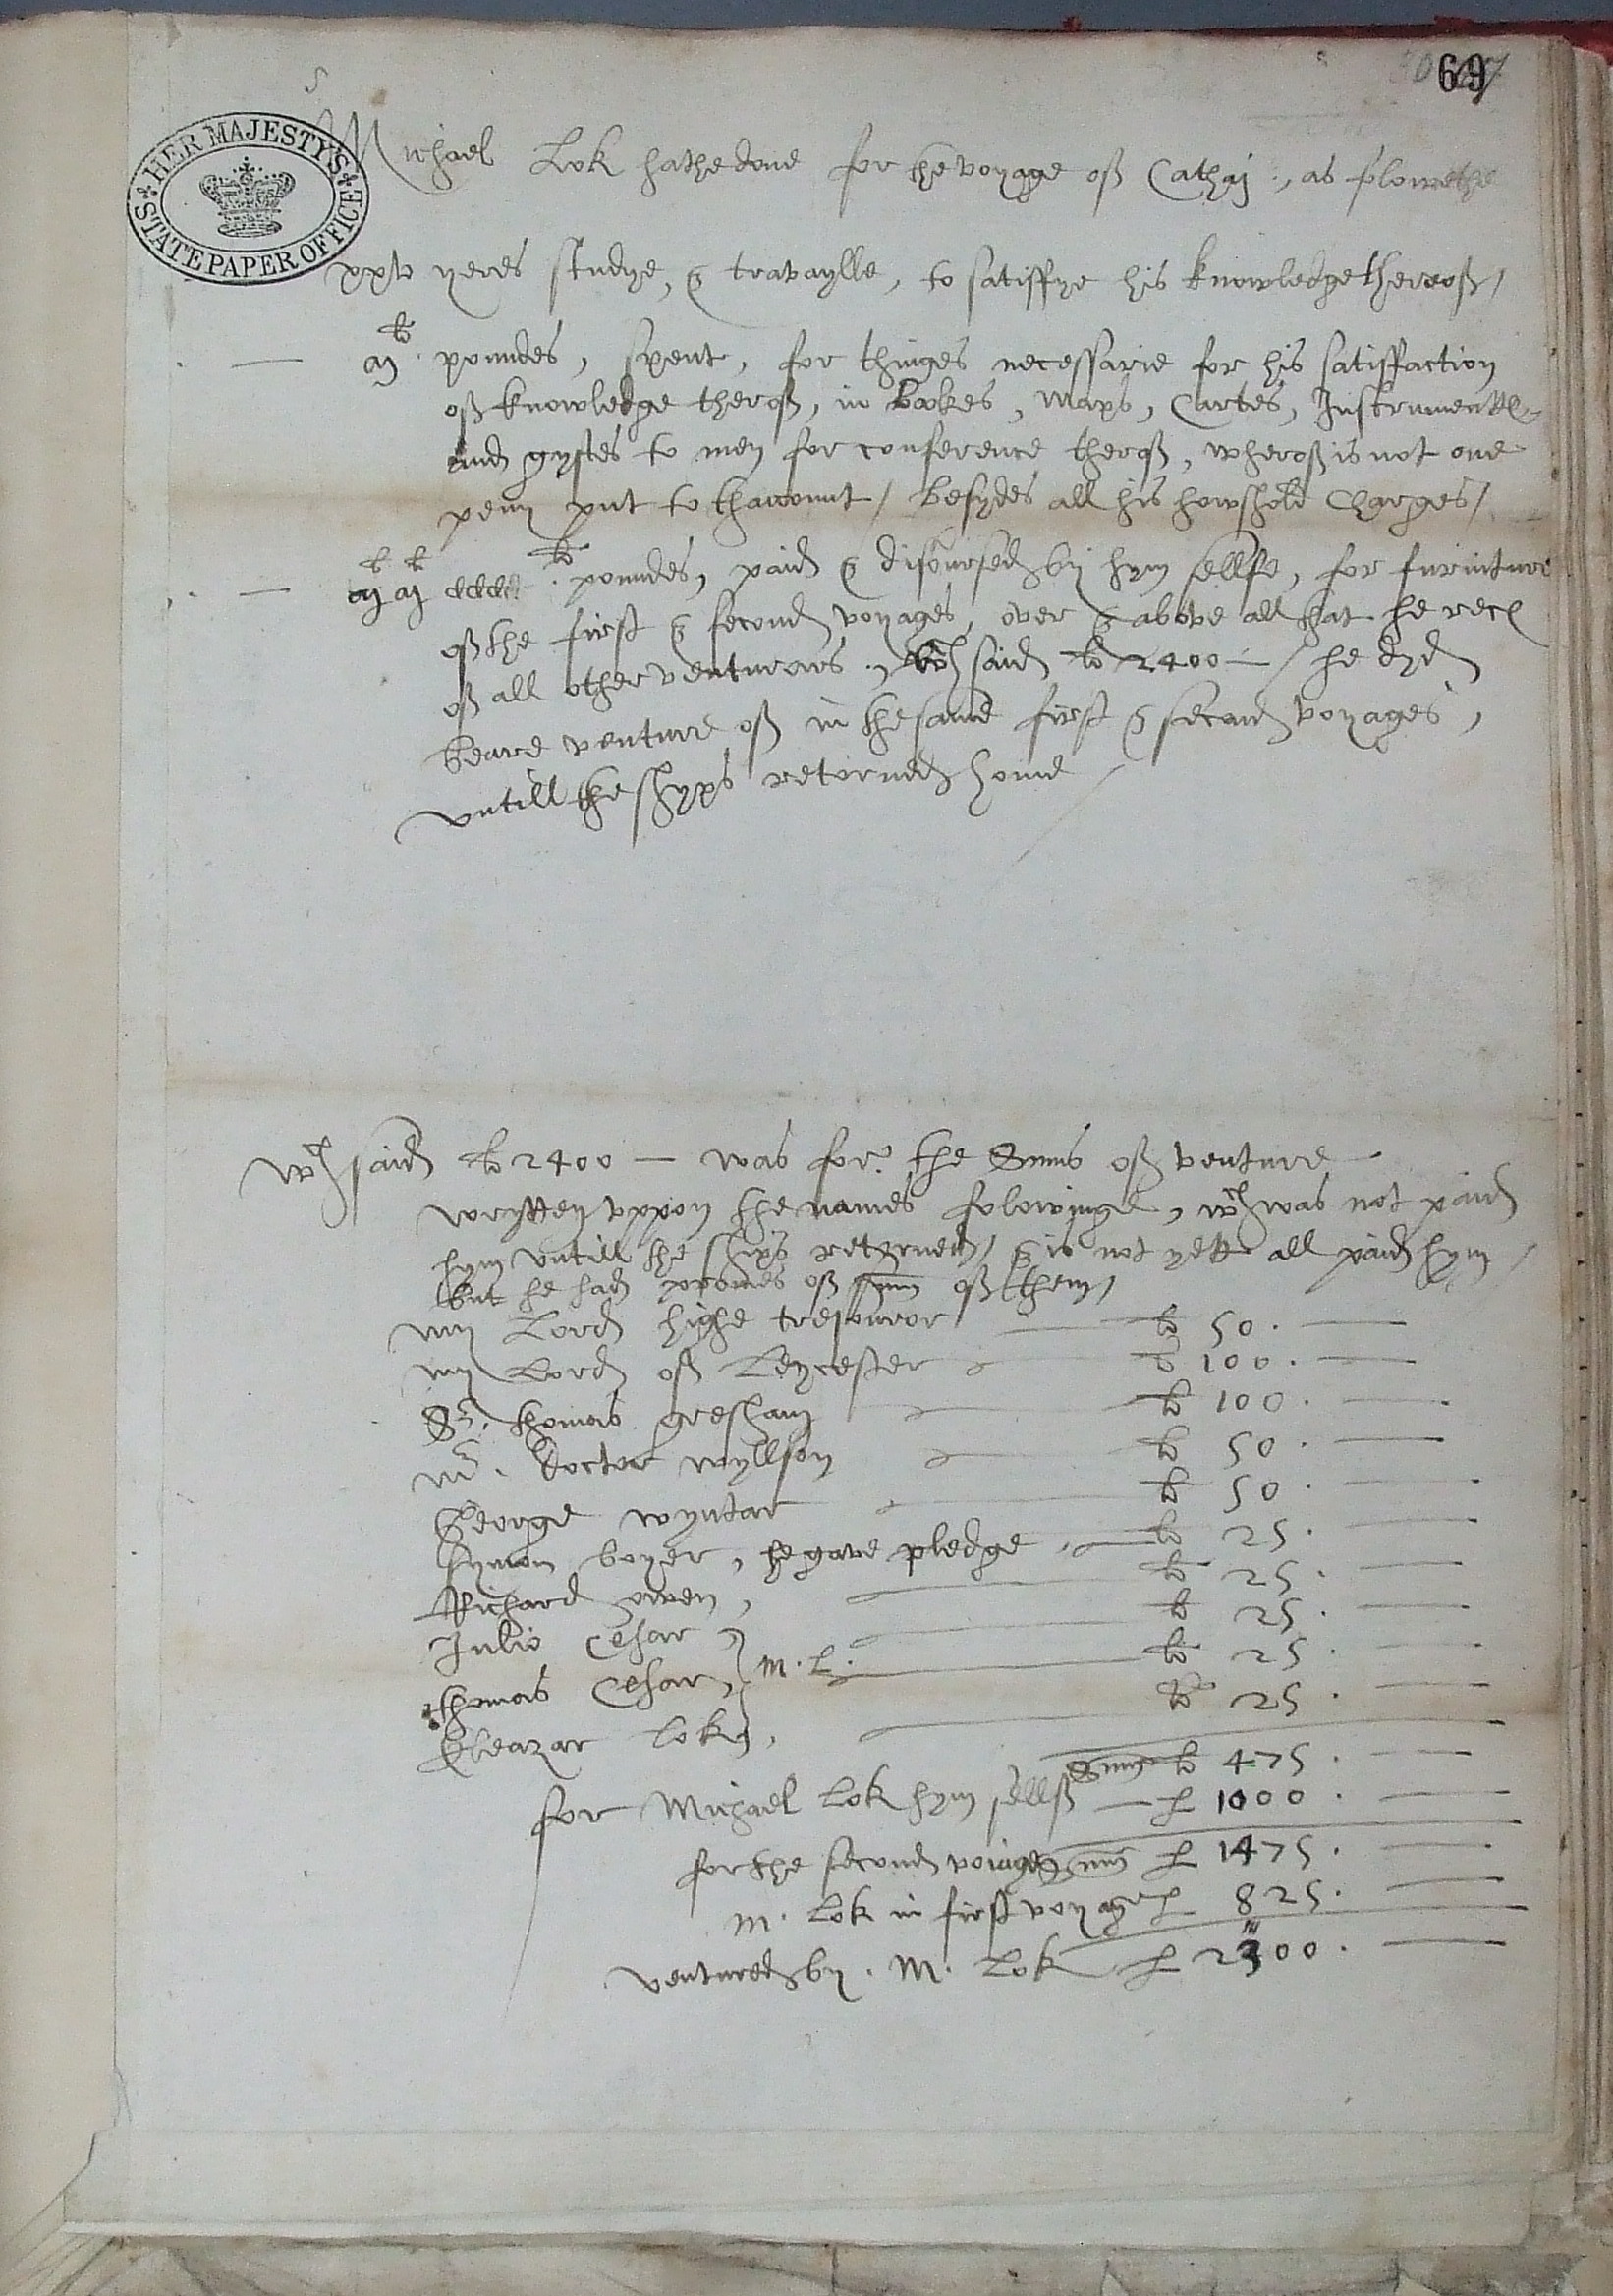 69
HER MAJESTY'S
STATE PAPER OFFICE
Michael Lok hathe done for the voyage of Cathaj, as folowethe
xxv yeres studye, & travaylle, to satisffye his knowledge thereof /
poundes, spent, for thinges necessarie for his satisffaction
of knowledge therof, in bookes, maps, Cartes, Instrumentes
and gyftes to men for conference therof, wherof is not one
peny put to thaccount / besydes all his howshold Charges /
CCCC poundes, paid & disboursed by hym sellfe, for furniture
of the first & second voyages, over & above all that he rec
of all other venturars, wch said li 2400 — / he dyd
beare venture of in the same first & second voyages,
untill the shyps retorned home /
wch said li 2400 — was for the Sums of venture
wrytten uppon the names folowinge, wch was not paid
hym untill the ships retorned / & is not yett all paid hym /
but he had promes of sum of them /
my Lord highe tresouror li 50 . —
my Lord of Leycester li 100 . —
Sr. thomas gresham li 100 . —
mr. doctor wyllson li 50 . —
George wyntar li 50 . —
symon boyer, he gave pledge li 25 . —
Richard owen, li 25 . —
Julio Cesar, li 25 . —
thomas Cesar, } M. L. li 25 . —
Eleazar lok, li 25 . —
Sum li 475 . —
for Michael lok hym sellf — £ 1000 . —
for the second voiage Sum £ 1475 . —
M. lok in first voyage £ 825 . —
ventured by . M. Lok £ 2300 . —